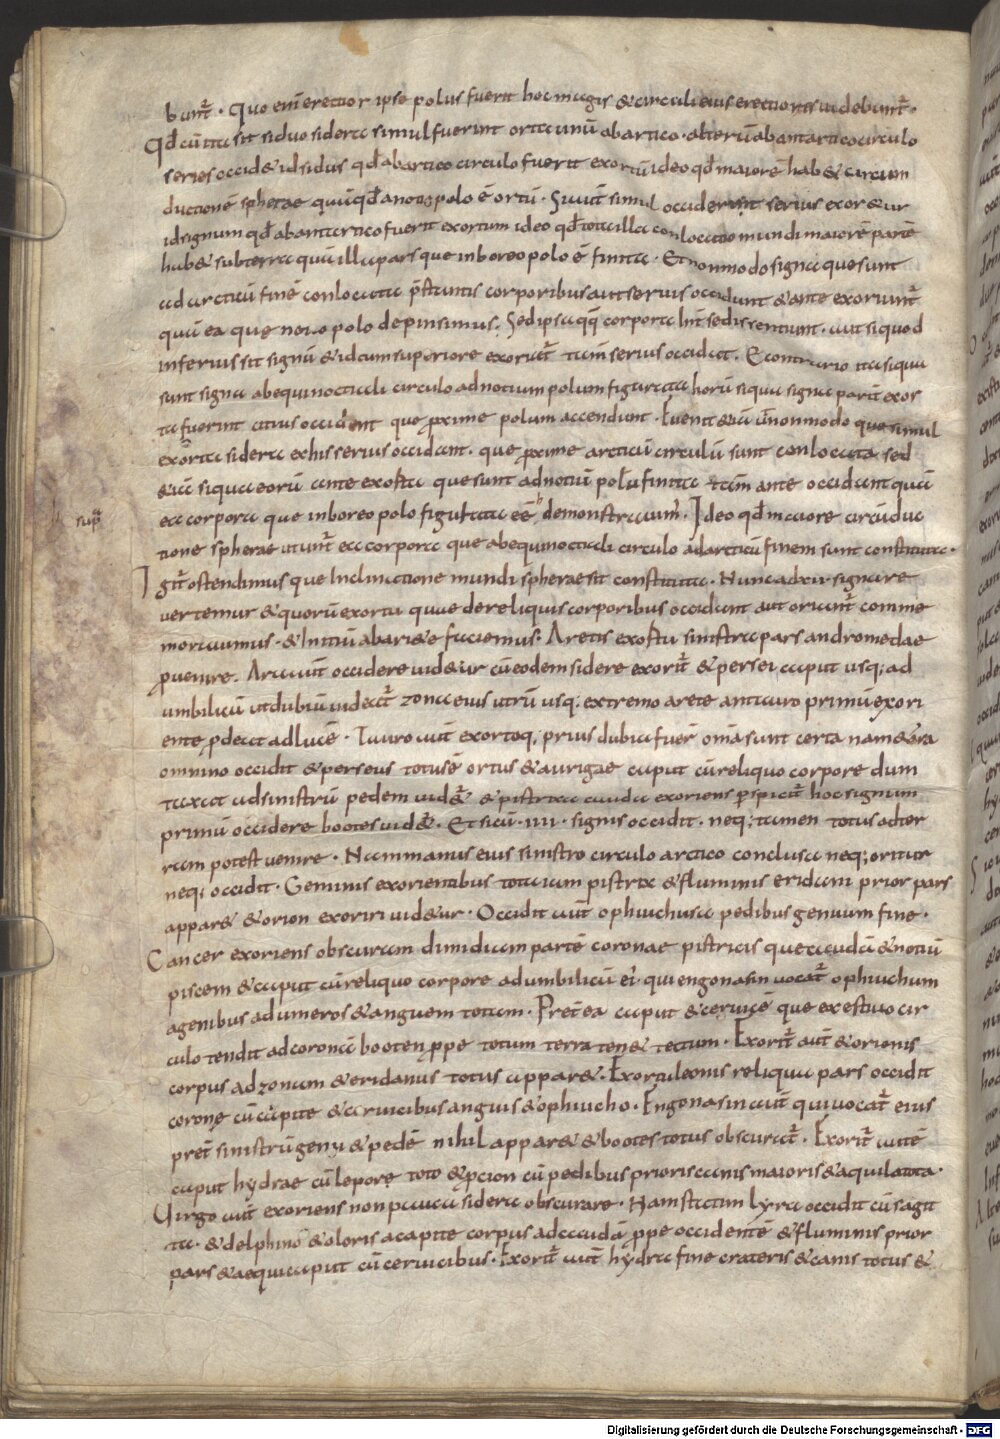 bunt̃. Quo eni erectior ipse polus fuerit hoc magis & circuli eius erectiores uidebunt̃.
Qđ cū ita sit si duo sidera simul fuerint orta unū ab artico. alterū ab antartico circulo
serius occid& id sidus qđ ab artico circulo fuerit exortū ideo qđ maiorē hab& circum
ductionē spherae quā qđ a notio polo ē ortū. Si aut̄ simul occiderunt serius exori&ur
id signum qđ ab antartico fuerit exortum ideo qđ tota illa conlocatio mundi maiorē partē
hab& sub terra quā illa pars que in boreo polo ē finita. Et non modo signa que sunt
ad arcticū finē conlocata p̄stantis corporibus aut serius occidunt & ante exoriunt̃
quā ea quę notio polo depinximus. Sed ipsa qq; corpora int̄ se dissentiunt. aut si quod
inferius sit signū & id cum superiore exoriat̃ tam̄ serius occidat. E contrario ita si qua
sunt signa ab equinoctiali circulo ad notium polum figurata horū si qua signa parit̄ exor
ta fuerint citius occident que p̱xime polum accendunt. Euenit & iā ū non modo que simul
exorta sidera ex his serius occidant. que p̱xime arcticū circulū sunt conlocata sed
& iā si qua eorū ante exorta que sunt ad notiū polū finita tam̄ ante occidant quā
ea corpora que in boreo polo figurata eē demonstrauim̓. Ideo qđ maiore circūduc
supª
tione spherae utunt̃ ea corpora que ab equinoctiali circulo ad arcticū finem sunt constituta.
Igit̃ ostendimus que inclinatione mundi spherae sit constituta. Nunc ad xii signa re
uertemur & quorū exortu quae de reliquis corporibus occidunt aut oriunt̃ comme
morauimus. & initiū ab ari&e faciemus. Aretis exortu sinistra pars andromedae
p̱uenire. Ara aut̄ occidere uid&ur cū eodem sidere exorit̃ & persei caput usq; ad
umbilicū ut dubiū uideat̃ zona eius utrū usq; extremo arete an tauro primū exori
ente p̱deat ad lucē. Tauro aut̄ exortoq; prius dubia fuer̄ om̄a sunt certa nam & ara
omnino occidit & perseus totus ē ortus & aurigae caput cū reliquo corpore dum
taxat ad sinistrū pedem uid&̃ & pistrica cauda exoriens p̱spicit̃ hoc signum
primū occidere bootes uid&̃. Et sicū. iiii. signis occidit. neq; tamen totus ad ter
ram potest uenire. Nam manus eius sinistro circulo arctico conclusa neq; oritur
neq; occidit. Geminis exorientibus tota iam pistrix & fluminis eridani prior pars
appar& & orion exoriri uid&ur. Occidit aut̄ ophiuchus a pedibus genuum fine.
Cancer exoriens obscuram dimidiam partē coronae pistricis que caudā & notiū
piscem & caput cū reliquo corpore ad umbilicū ei̓ qui engonasin uocat̃ ophiuchum
a genibus ad umeros & anguem totum. Pret̄ ea caput & ceruicē que ex estiuo cir
culo tendit ad coronā booten p̱pe totum terra ten& tectum. Exorit̃ aut̄ & orionis
corpus ad zonam & eridanus totus appar&. Exortu leonis reliqua pars occidit
corone cū capite & ceruicibus anguis & ophiucho. Engonasin aut̄ qui uocat̃ eius
pret̄ sinistrū genu & pedē nihil appar& & bootes totus obscurat̃. Exorit̃ autē
caput hydrae cū lepore toto & p̱cion cū pedibus prioris canis maioris & aquila tota.
Uirgo aut̄ exoriens non pauca sidera obscurare. Nam statim lyra occidit cū sagit
ta. & delphino & oloris a capite corpus ad caudā p̱pe occidentē & fluminis prior
pars & aequi caput cū ceruicibus. Exorit̃ aut̄ hydra fine crateris & canis totus &
Digitalisierung gefördert durch die Deutsche Forschungsgemeinschaft - DFG